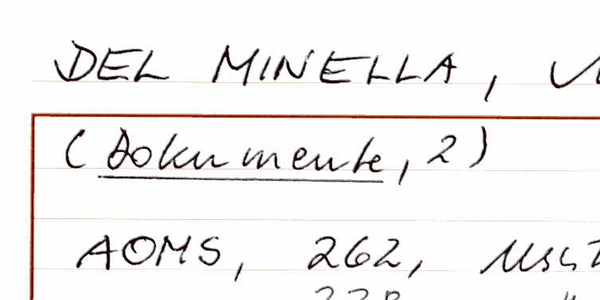 DEL MINELLA,
(Dokumente, 2)
AOMS, 262,